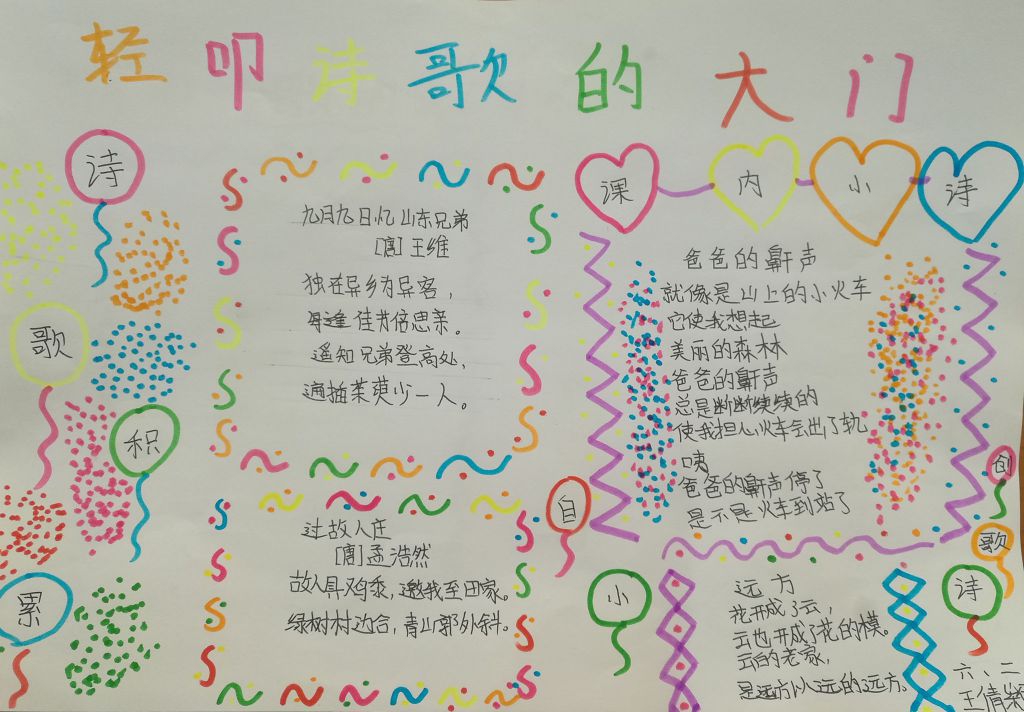 轻叩诗歌的大门
诗歌积累
九月九日忆山东兄弟
[唐]王维
独在异乡为异客，
每逢佳节倍思亲。
遥知兄弟登高处，
遍插茱萸少一人。
过故人庄
[唐]孟浩然
故人具鸡黍，邀我至田家。
绿树村边合，青山郭外斜。
课内小诗
爸爸的鼾声
就像是山上的小火车
它使我想起
美丽的森林
爸爸的鼾声
总是断断续续的
使我担心火车会出了轨
咦
爸爸的鼾声停了
是不是火车到站了
自创小诗歌
远方
花开成了云，
云也开成了花的模。
云的老家，
是远方以远的远方。
六、二
王倩